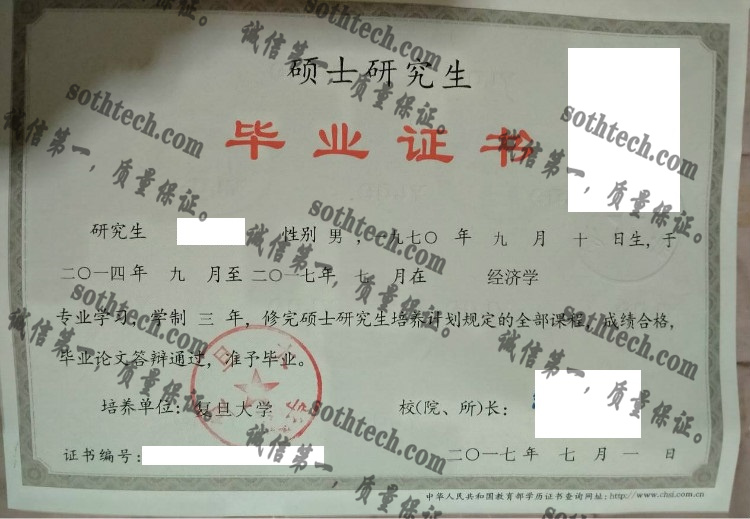 硕士研究生
毕业证书
研究生 性别 男 ，一九七〇 年 九 月 十 日生，于
二〇一四年 九 月至 二〇一七年 七 月在 经济学
专业学习，学制 三 年，修完硕士研究生培养计划规定的全部课程，成绩合格，
毕业论文答辩通过，准予毕业。
培养单位：复旦大学 校(院、所)长：
证书编号：
二〇一七年 七 月 一 日
中华人民共和国教育部学历证书查询网址：http://www.chsi.com.cn
sothtech.com
诚信第一，质量保证。
sothtech.com
诚信第一，质量保证。
sothtech.com
诚信第一，质量保证。
sothtech.com
诚信第一，质量保证。
sothtech.com
诚信第一，质量保证。
sothtech.com
诚信第一，质量保证。
sothtech.com
诚信第一，质量保证。